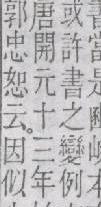 書當是
或許書之變例
唐開元十三年
郭忠恕云。因似